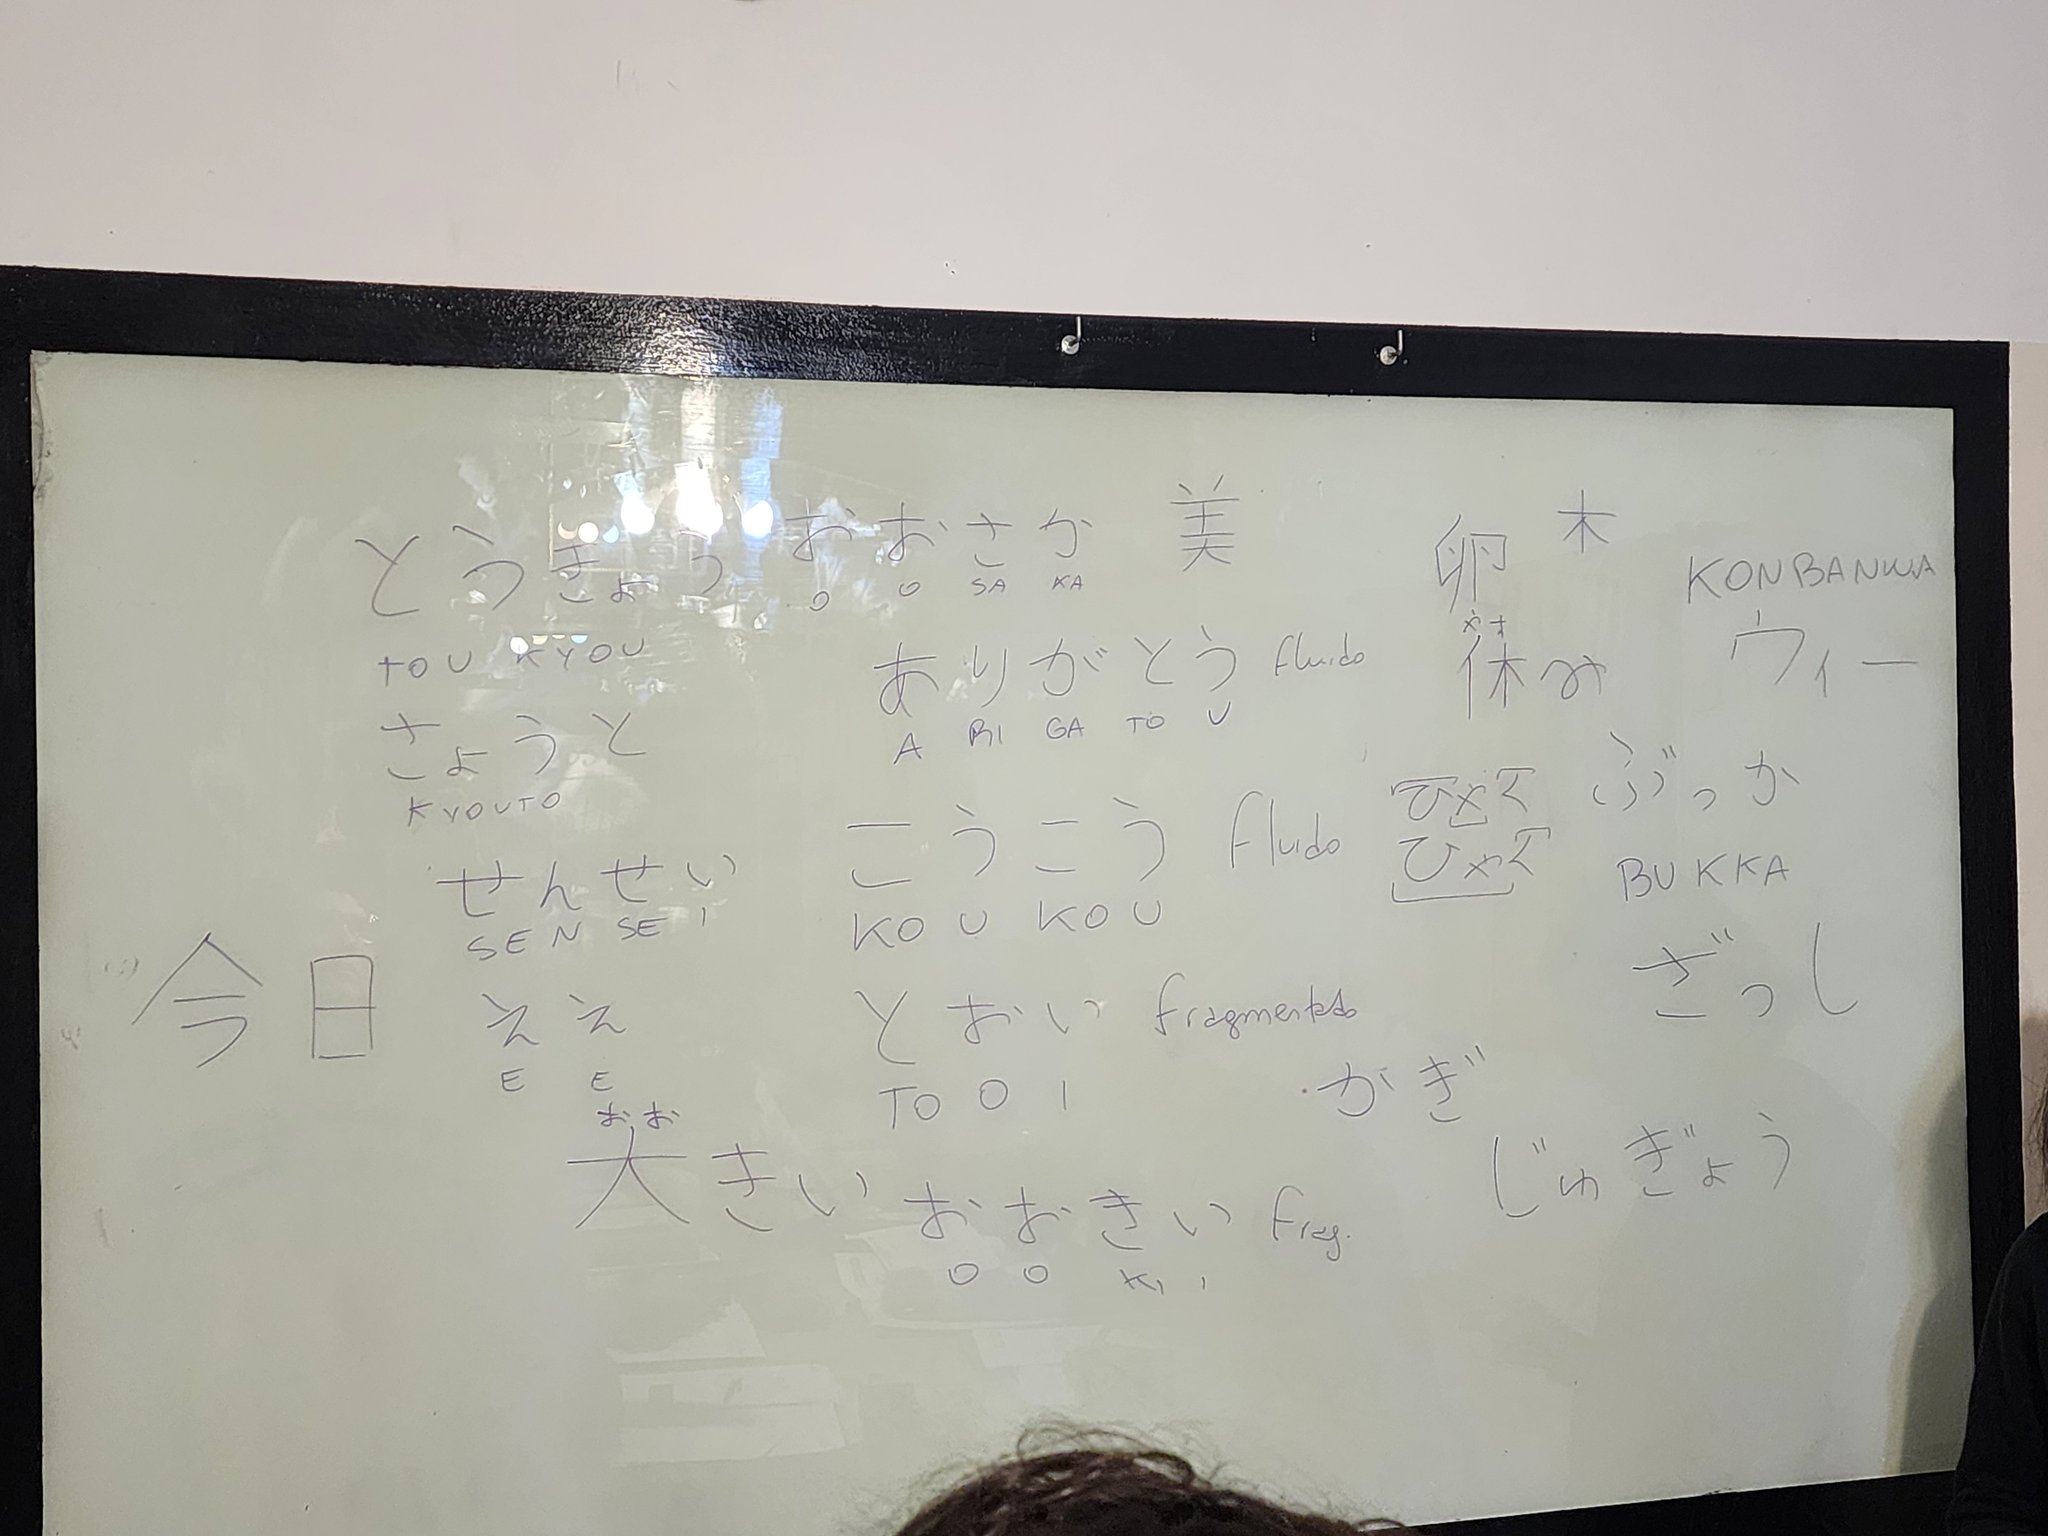 とうきょう
TOU KYOU
きょうと
KYOUTO
せんせい
SEN SE I
今日
ええ
E E
おお
大きい
おおさか
O O SA KA
ありがとう fluido
A RI GA TO U
こうこう fluido
KO U KO U
とおい fragmentado
TO O I
おおきい frag.
O O KI I
美
卵
木
やす
休み
ひゃく
ひゃく
・かぎ
KONBANWA
ウィー
ぶっか
BUKKA
ざっし
じゅぎょう